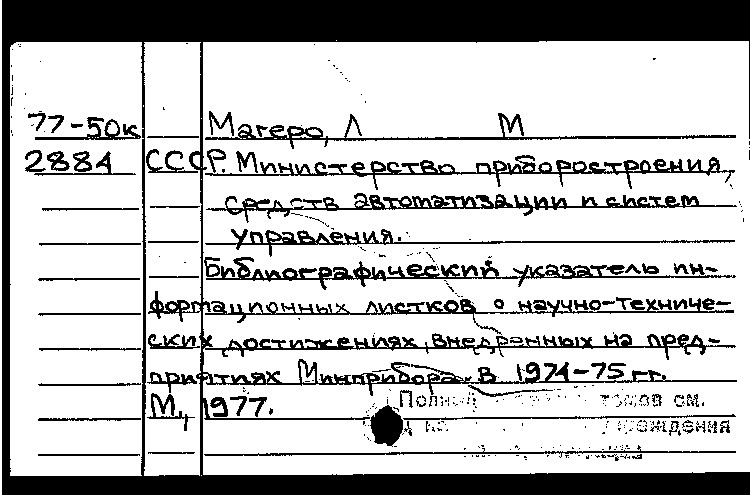 77-50к Магеро, Л М
2884 СССР. Министерство приборостроения,
средств автоматизации и систем
управления.
Библиографический указатель ин-
формационных листков о научно-техниче-
ских достижениях, внедренных на пред-
приятиях Минприбора в 1974-75 гг.
М., 1977.
томов см.